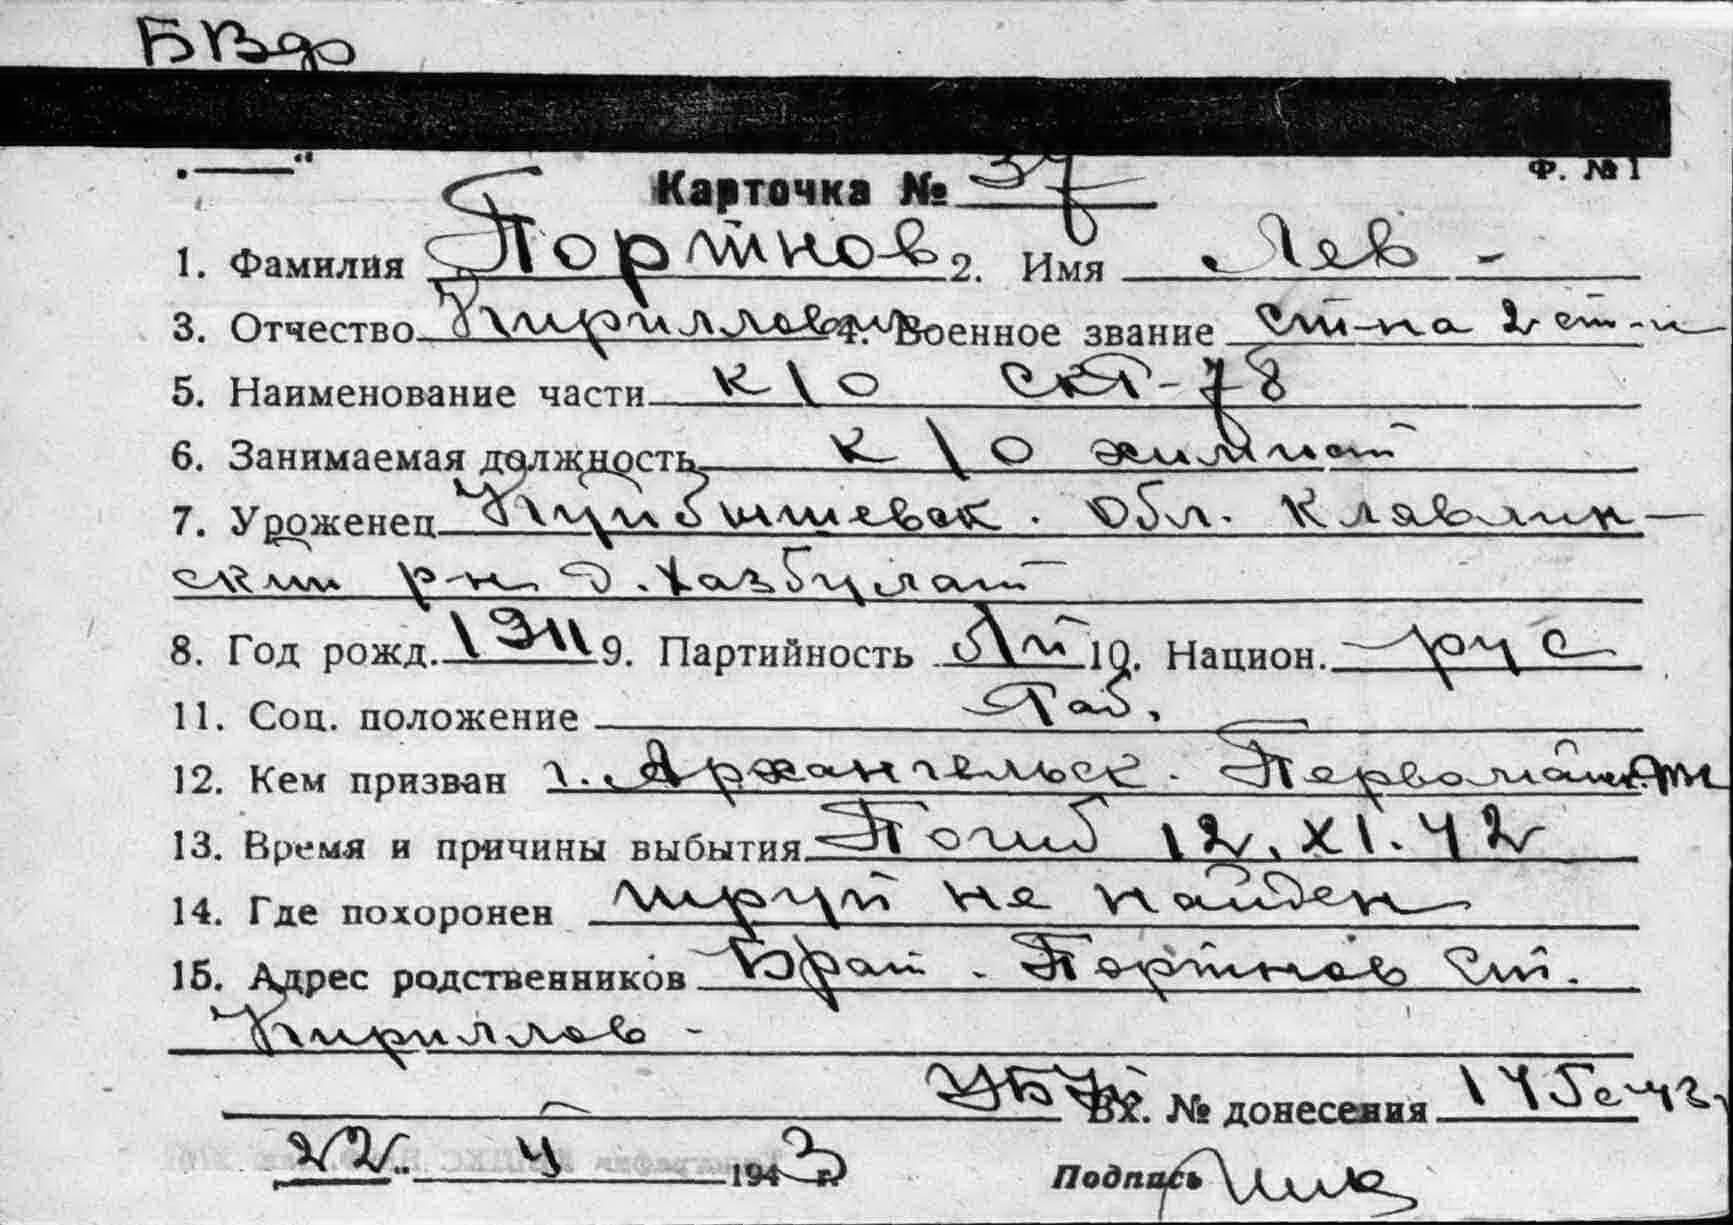 БВдо
Ф. №1
Карточка № 37
1. Фамилия Портнов 2. Имя Лев -
3. Отчество Кириллович 4. Военное звание ст-на 2 ст-и
5. Наименование части к\о СКР-78
6. Занимаемая должность к\о химист
7. Уроженец Куйбышевск. Обл. Клявлин-
ский р-н д. Хазбулат
8. Год рожд. 1911 9. Партийность б/п 10. Национ. рус
11. Соц. положение Раб.
12. Кем призван г. Архангельск. Первомайск.
13. Время и причины выбытия Погиб 12.XI.42
14. Где похоронен труп не найден
15. Адрес родственников Брат. Портнов Ст.
Кириллов -
Вх. № донесения 145с-43г
22. 4 1943 г.
Подпись